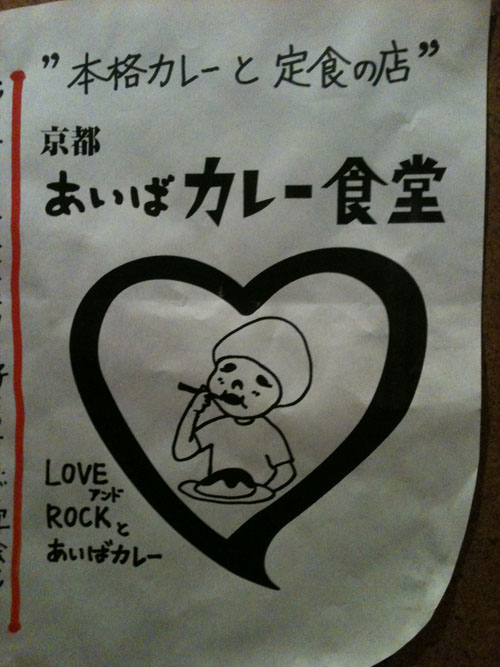 "本格カレーと 定食の店"
京都
あいばカレー食堂
LOVE
アンド
ROCKと
あいばカレー